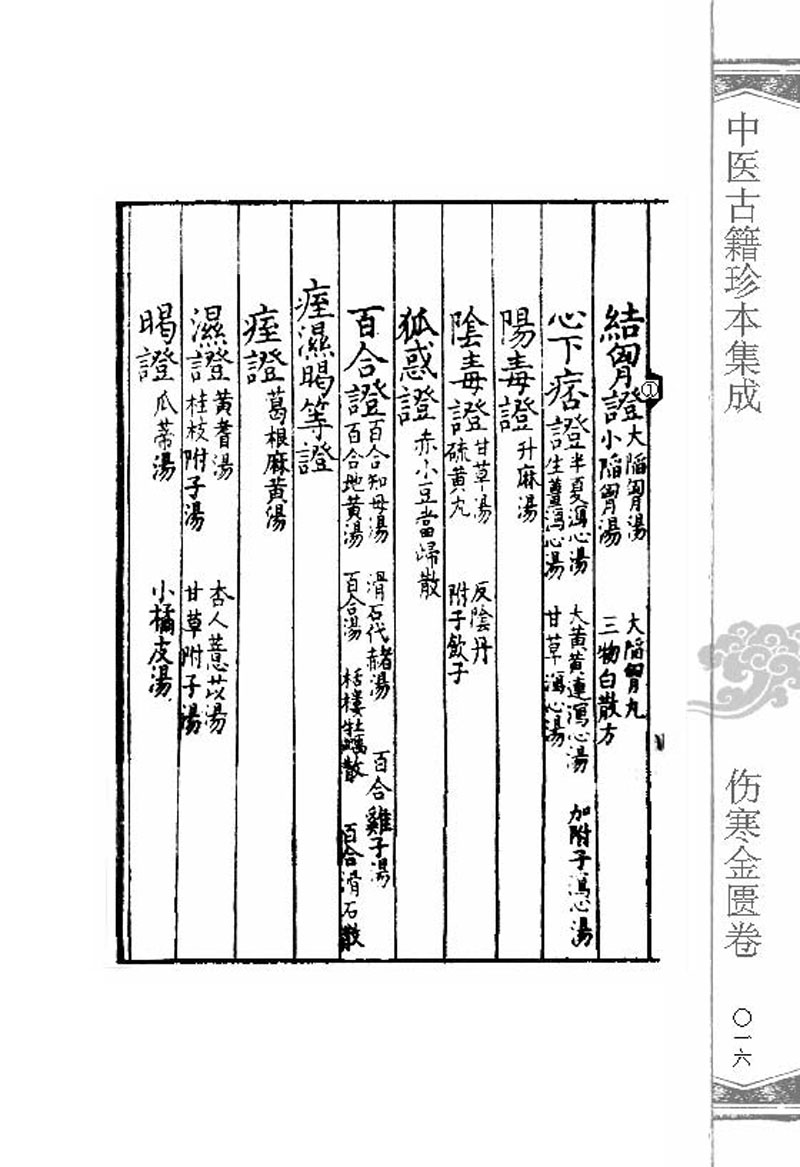 中医古籍珍本集成
伤寒金匮卷
〇一六
①
結胷證 大陷胷湯 大陷胷丸
小陷胷湯 三物白散方
心下痞證 半夏瀉心湯 大黃黃連瀉心湯 加附子瀉心湯
生薑瀉心湯 甘草瀉心湯
陽毒證 升麻湯
陰毒證 甘草湯 反陰丹
硫黃丸 附子飲子
狐惑證 赤小豆當歸散
百合證 百合知母湯 滑石代赭湯 百合雞子湯
百合地黃湯 百合湯 栝樓牡蠣散 百合滑石散
痓濕暍等證
痓證 葛根麻黃湯
濕證 黃耆湯 杏人薏苡湯
桂枝附子湯 甘草附子湯
暍證 瓜蒂湯 小橘皮湯